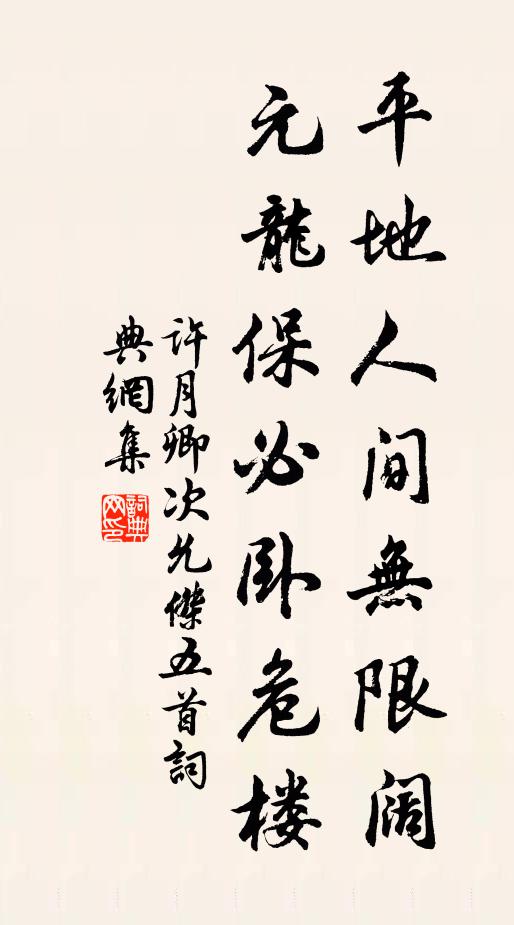 平地人间無限阔
元龍保必卧危楼
许月卿次允傑五首詞
典網集
詞典网印